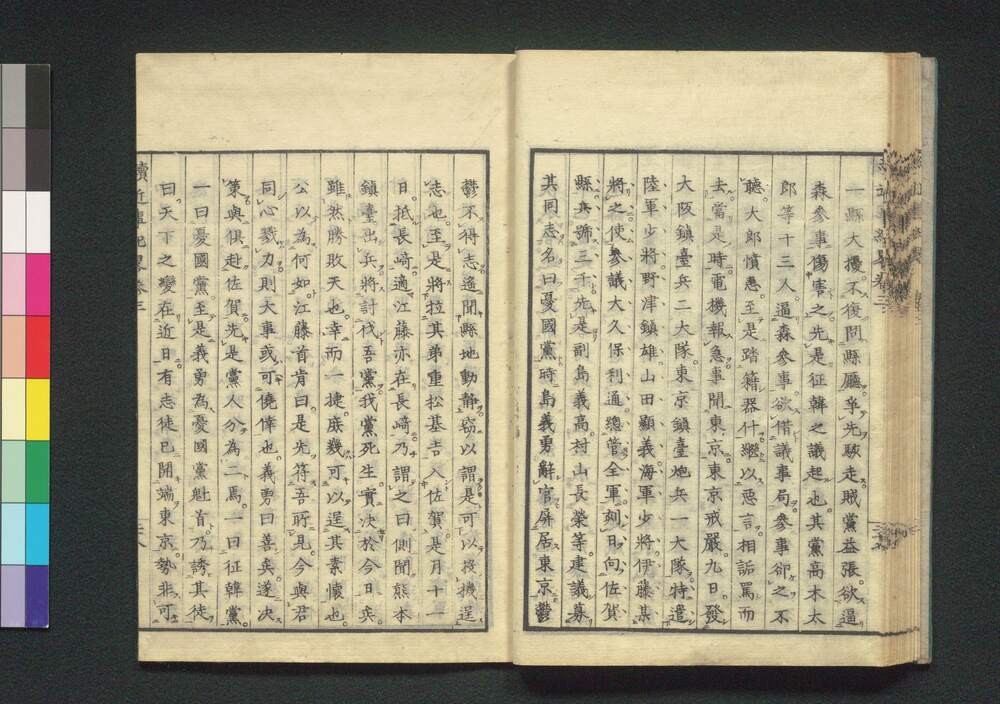 一縣大擾不復問縣廳爭先駭走賊黨益張欲逼
森參事傷害之先是征韓之議起也其黨高木太
郎等十三人逼森參事欲借議事局參事卻之不
聽大郎憤恚至是踏籍器什繼以惡言相詬罵而
去當是時電機報急事聞東京東京戒嚴九日發
大阪鎮臺兵二大隊東京鎮臺炮兵一大隊特遣
陸軍少將野津鎮雄山田顯義海軍少將伊藤某
將之使參議大久保利通總管全軍刻日向佐賀
縣兵號三千先是副島義高村山長榮等建議募
其同志名曰憂國黨時島義勇辭官屏居東京鬱
鬱不得志遙聞縣地動靜竊以謂是可以投機逞
志也至是將拉其弟重松基吉入佐賀是月十一
日抵長崎適江藤亦在長崎乃謂之曰側聞熊本
鎮臺出兵將討伐吾黨我黨死生實決於今日矣
雖然勝敗天也幸而一捷庶幾可以逞其素懷也
公以為何如江藤首肯曰是先符吾所見今與君
同心戮力則大事或可僥倖也義勇曰善矣遂決
策與俱赴佐賀先是黨人分為二焉一曰征韓黨
一曰憂國黨至是義勇為憂國黨魁首乃誘其徒
曰天下之變在近日有志徒已開端東京勢非可
續近事紀畧卷三